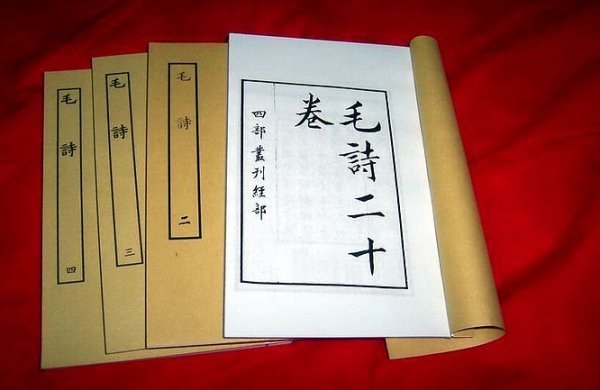 毛詩二十
卷
四部叢刊經部
毛詩
二
毛詩
三
毛詩
四